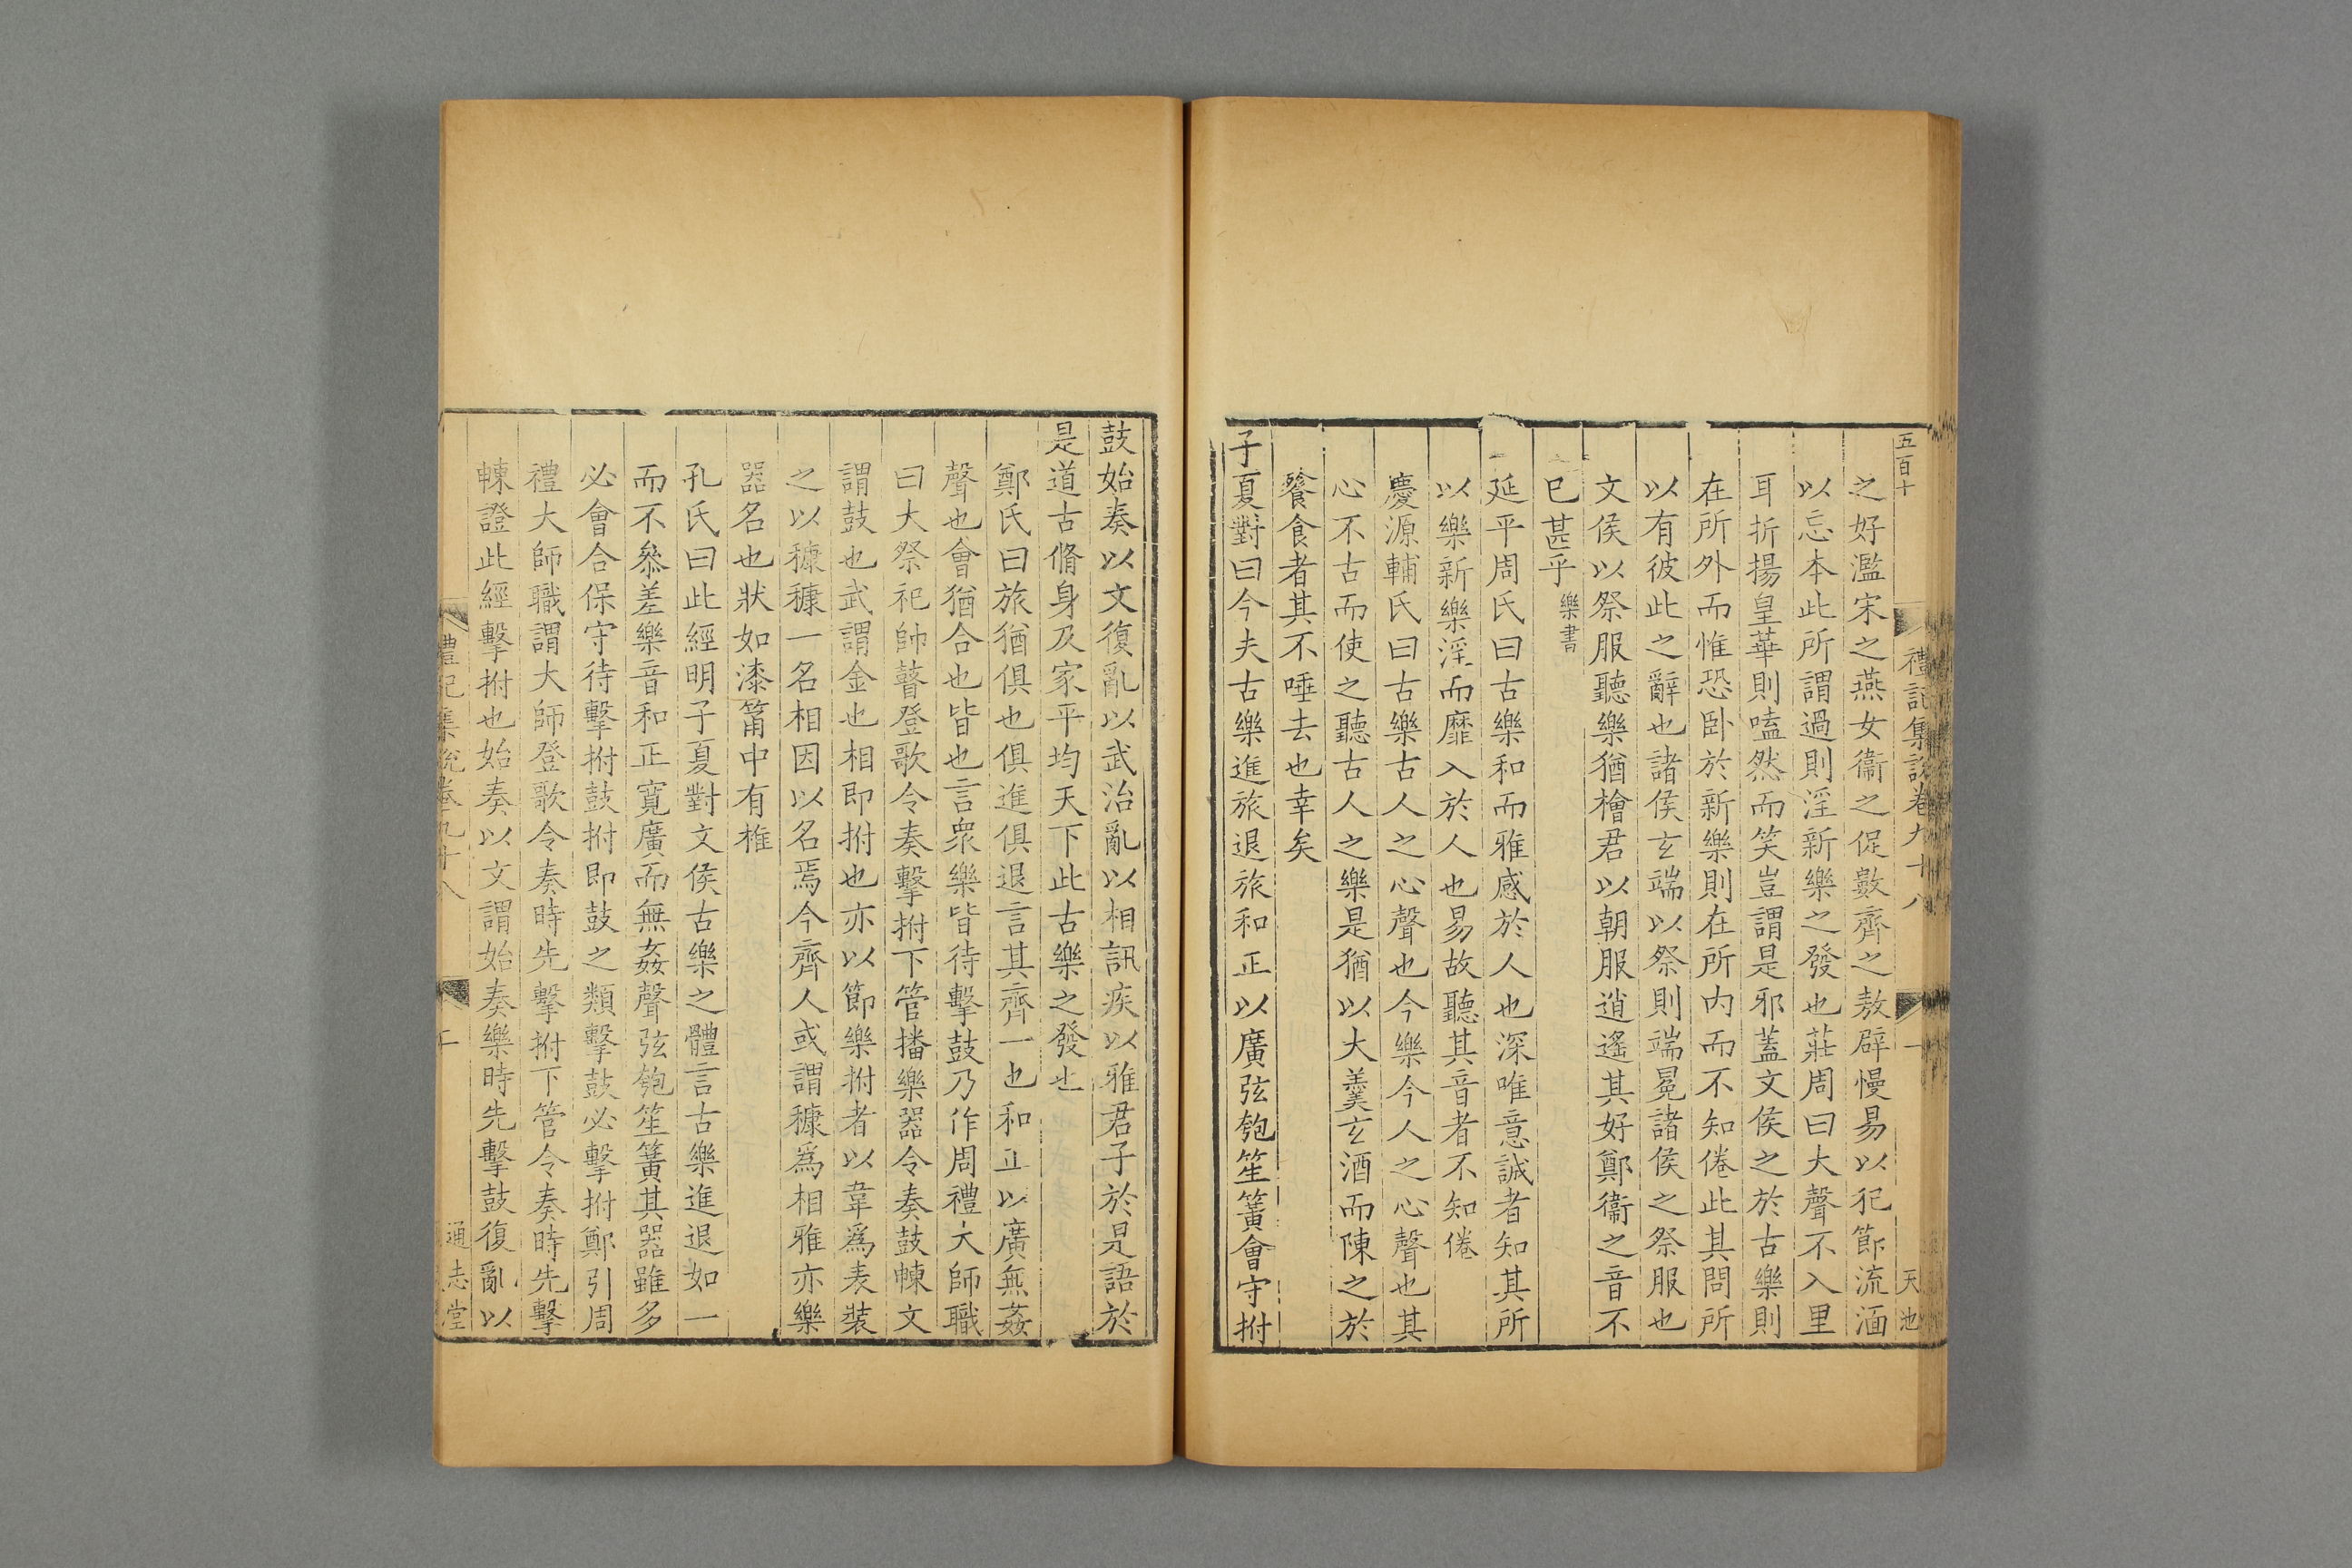 五百十
禮記集說卷九十八
一
天池
之好濫宋之燕女衞之促數齊之敖辟慢易以犯節流湎
以忘本此所謂過則淫新樂之發也莊周曰大聲不入里
耳折揚皇華則嗑然而笑豈謂是邪蓋文侯之於古樂則
在所外而惟恐卧於新樂則在所内而不知倦此其問所
以有彼此之辭也諸侯玄端以祭則端冕諸侯之祭服也
文侯以祭服聽樂猶檜君以朝服逍遙其好鄭衞之音不
已甚乎樂書
延平周氏曰古樂和而雅感於人也深唯意誠者知其所
以樂新樂淫而靡入於人也易故聽其音者不知倦
慶源輔氏曰古樂古人之心聲也今樂今人之心聲也其
心不古而使之聽古人之樂是猶以大羹玄酒而陳之於
餮食者其不唾去也幸矣
子夏對曰今夫古樂進旅退旅和正以廣弦匏笙簧會守拊
鼓始奏以文復亂以武治亂以相訊疾以雅君子於是語於
是道古脩身及家平均天下此古樂之發也
鄭氏曰旅猶俱也俱進俱退言其齊一也和正以廣無姦
聲也會猶合也皆也言衆樂皆待擊鼓乃作周禮大師職
曰大祭祀帥瞽登歌令奏擊拊下管播樂器令奏鼓㯥文
謂鼓也武謂金也相即拊也亦以節樂拊者以韋爲表裝
之以穅穅一名相因以名焉今齊人或謂穅爲相雅亦樂
器名也狀如漆筩中有椎
孔氏曰此經明子夏對文侯古樂之體言古樂進退如一
而不叅差樂音和正寬廣而無姦聲弦匏笙簧其器雖多
必會合保守待擊拊鼓拊即鼓之類擊鼓必擊拊鄭引周
禮大師職謂大師登歌令奏時先擊拊下管令奏時先擊
㯥證此經擊拊也始奏以文謂始奏樂時先擊鼓復亂以
禮記集說卷九十八
二
通志堂